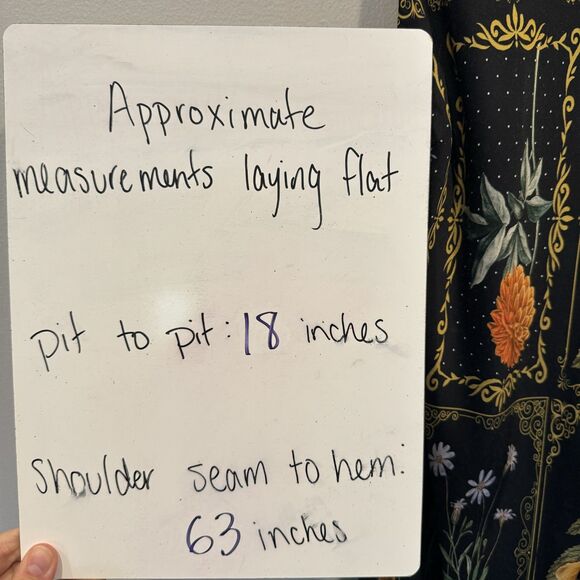 Approximate
measurements laying flat
pit to pit: 18 inches
shoulder seam to hem:
63 inches